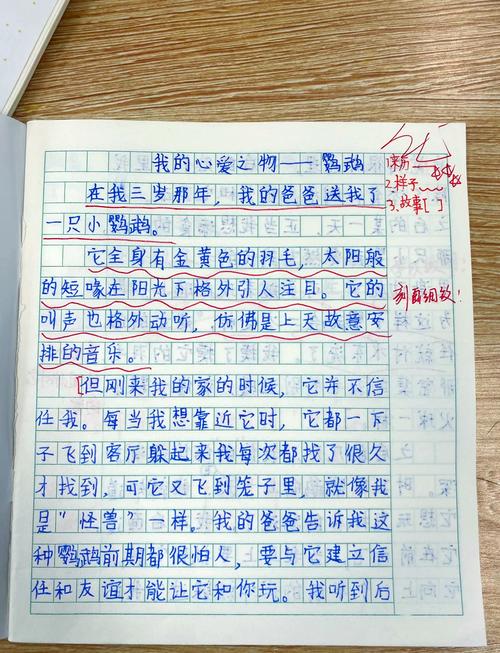 我的心爱之物——鹦鹉
在我三岁那年,我的爸爸送我了
一只小鹦鹉。
它全身有金黄色的羽毛,太阳般
的短喙在阳光下格外引人注目。它的
叫声也格外动听,仿佛是上天故意安
排的音乐。
[但刚来我的家的时候,它并不信
任我。每当我想靠近它时,它都一下
子飞到客厅躲起来我每次都找了很久
才找到,可它又飞到笼子里,就像我
是“怪兽”一样。我的爸爸告诉我这
种鹦鹉前期都很怕人,要与它建立信
任和友谊才能让它和你玩。我听到后
1.来历
2.样子
3.故事[ ]
刻画细致!